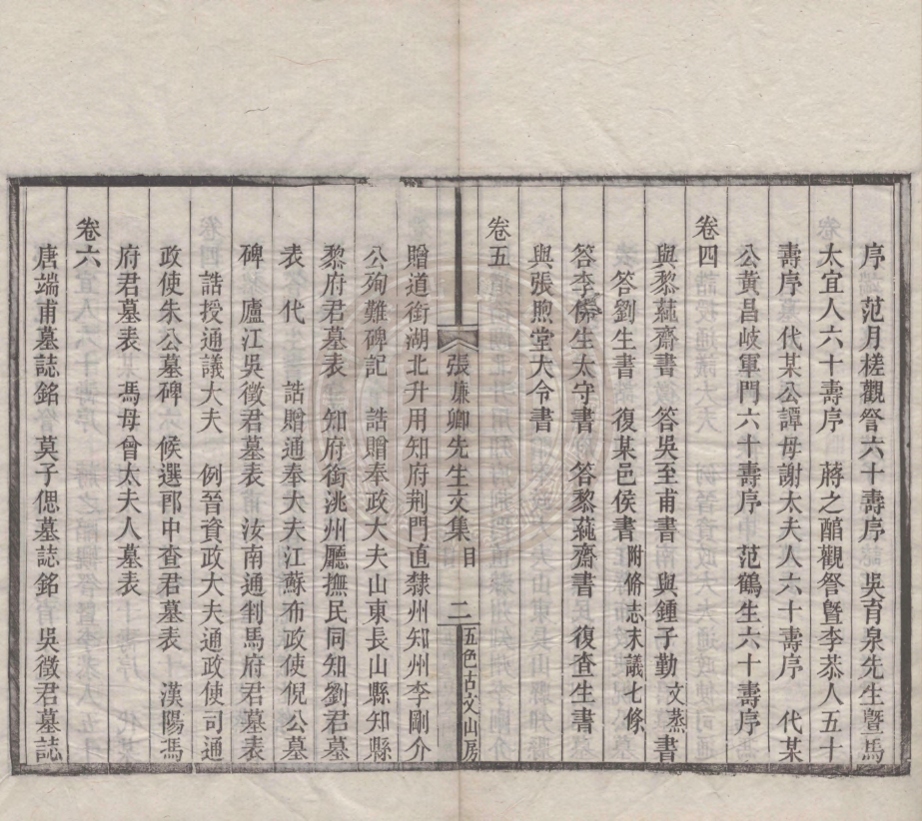 序　范月槎觀詧六十壽序　吳育泉先生曁馮
太宜人六十壽序　蔣之酩觀詧曁李恭人五十
壽序　代某公譚母謝太夫人六十壽序　代某
公黃昌岐軍門六十壽序　范鶴生六十壽序
卷四
與黎蒓齋書　答吳至甫書　與鍾子勤文烝書
答劉生書　復某邑侯書附脩志末議七條
答李生太守書　答黎蒓齋書　復查生書
與張煦堂大令書
卷五
張廉卿先生文集　目　二　五色古文山房
贈道銜湖北升用知府荆門直隸州知州李剛介
公殉難碑記　誥贈奉政大夫山東長山縣知縣
黎府君墓表　知府銜洮州廳撫民同知劉君墓
表　代　誥贈通奉大夫江蘇布政使倪公墓
碑　廬江吳徵君墓表　汝南通判馬府君墓表
誥授通議大夫　例晉資政大夫通政使司通
政使朱公墓碑　候選郎中查君墓表　漢陽馮
府君墓表　馮母曾太夫人墓表
卷六
唐端甫墓誌銘　莫子偲墓誌銘　吳徵君墓誌